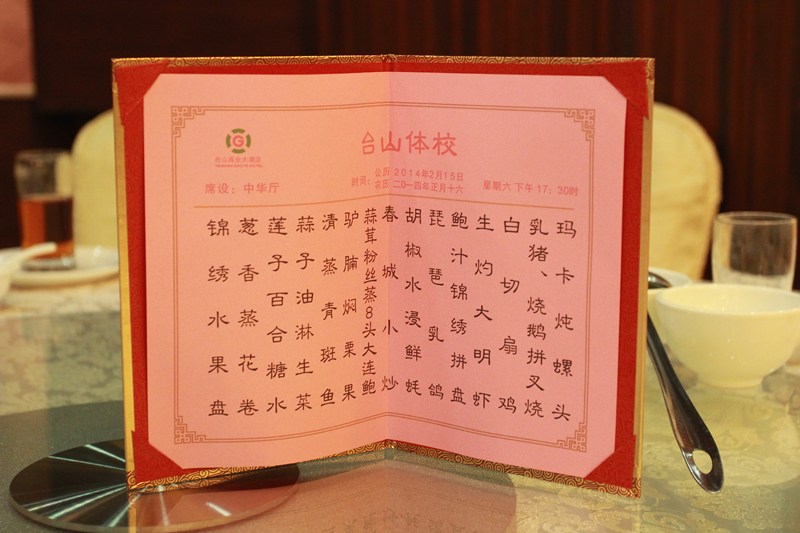 台山体校
席设：中华厅
时间：
公历 2014年2月15日
农历 二〇一四年正月十六
星期六 下午 17：30时
玛卡炖螺头
乳猪、烧鹅拼叉烧
白切扇鸡
生灼大明虾
鲍汁锦绣拼盘
琵琶乳鸽
胡椒水浸鲜蚝
春城小炒
蒜茸粉丝蒸8头大连鲍
驴腩焖栗果
清蒸青斑鱼
蒜子油淋生菜
莲子百合糖水
葱香蒸花卷
锦绣水果盘